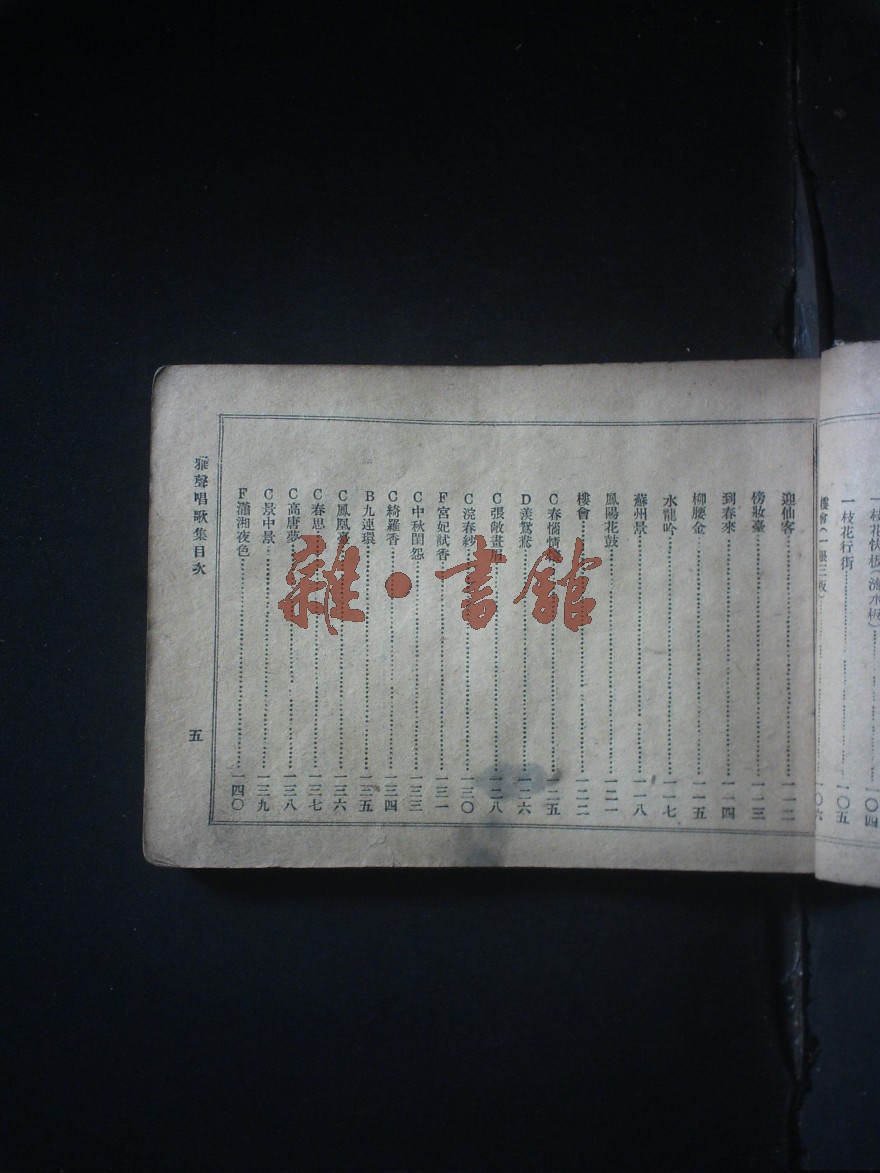 一枝花快板(流水板)一〇四
一枝花行街一〇五
樓會(一眼三板)一〇六
迎仙客一一二
傍妝臺一一三
到春來一一四
柳腰金一一五
水龍吟一一七
蘇州景一一八
鳳陽花鼓一二一
樓會一二二
C春惱情一二五
D羨鴛鴦一二六
C張敞畫眉一二八
C浣春紗一三〇
F宮妃試香一三一
C中秋閨怨一三三
C綺羅香一三四
B九連環一三五
C鳳凰臺一三六
C春思一三七
C高唐夢一三八
C景中景一三九
F瀟湘夜色一四〇
雅聲唱歌集目次 五
雜·書館